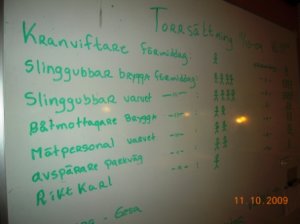 Torrsättning
Kranviftare förmiddag:
Slinggubbar brygga förmiddag:
Slinggubbar varvet —"— :
Båtmottagare Brygga —"— :
Mätpersonal varvet —"— :
avspärare parkväg —"— :
Rikt Karl
11.10.2009